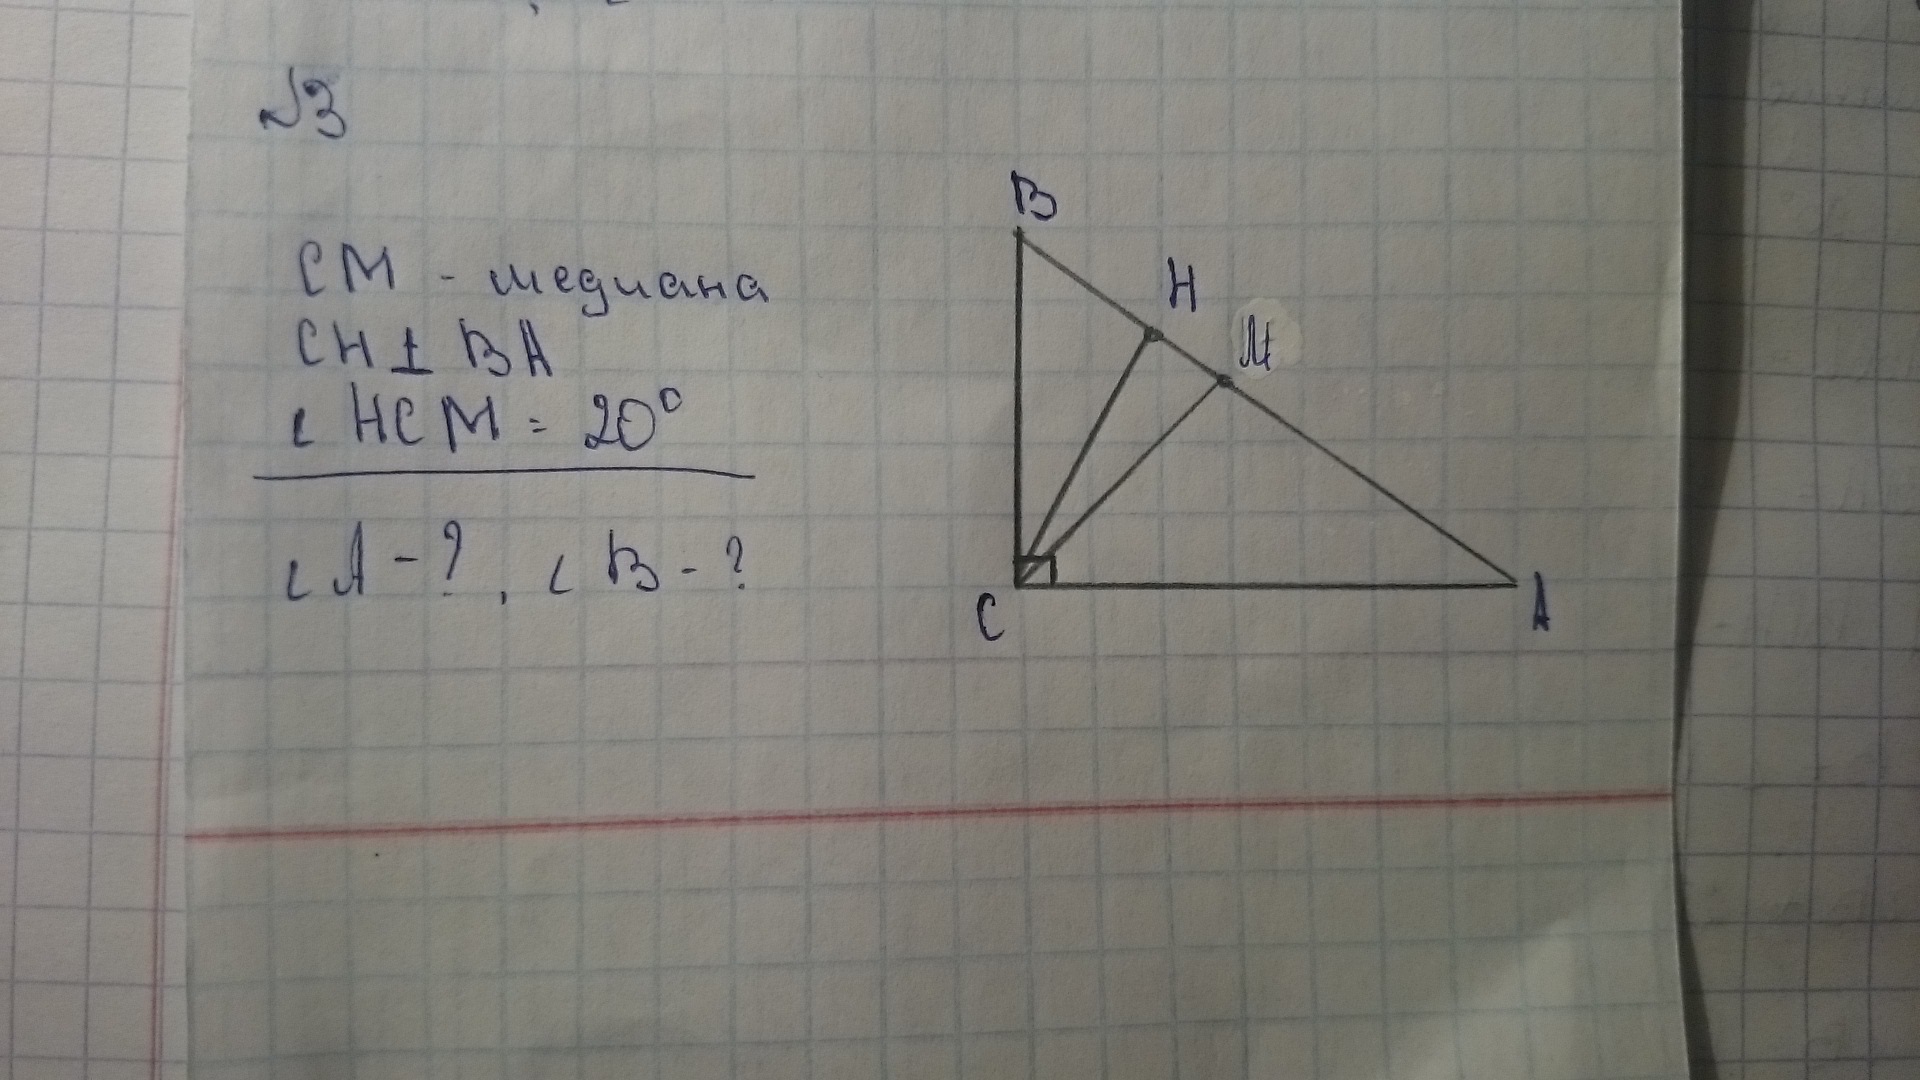 №3
CM - медиана
CH ⊥ BA
∠ HCM = 20°
∠ A - ? , ∠ B - ?
B
H
M
C
A